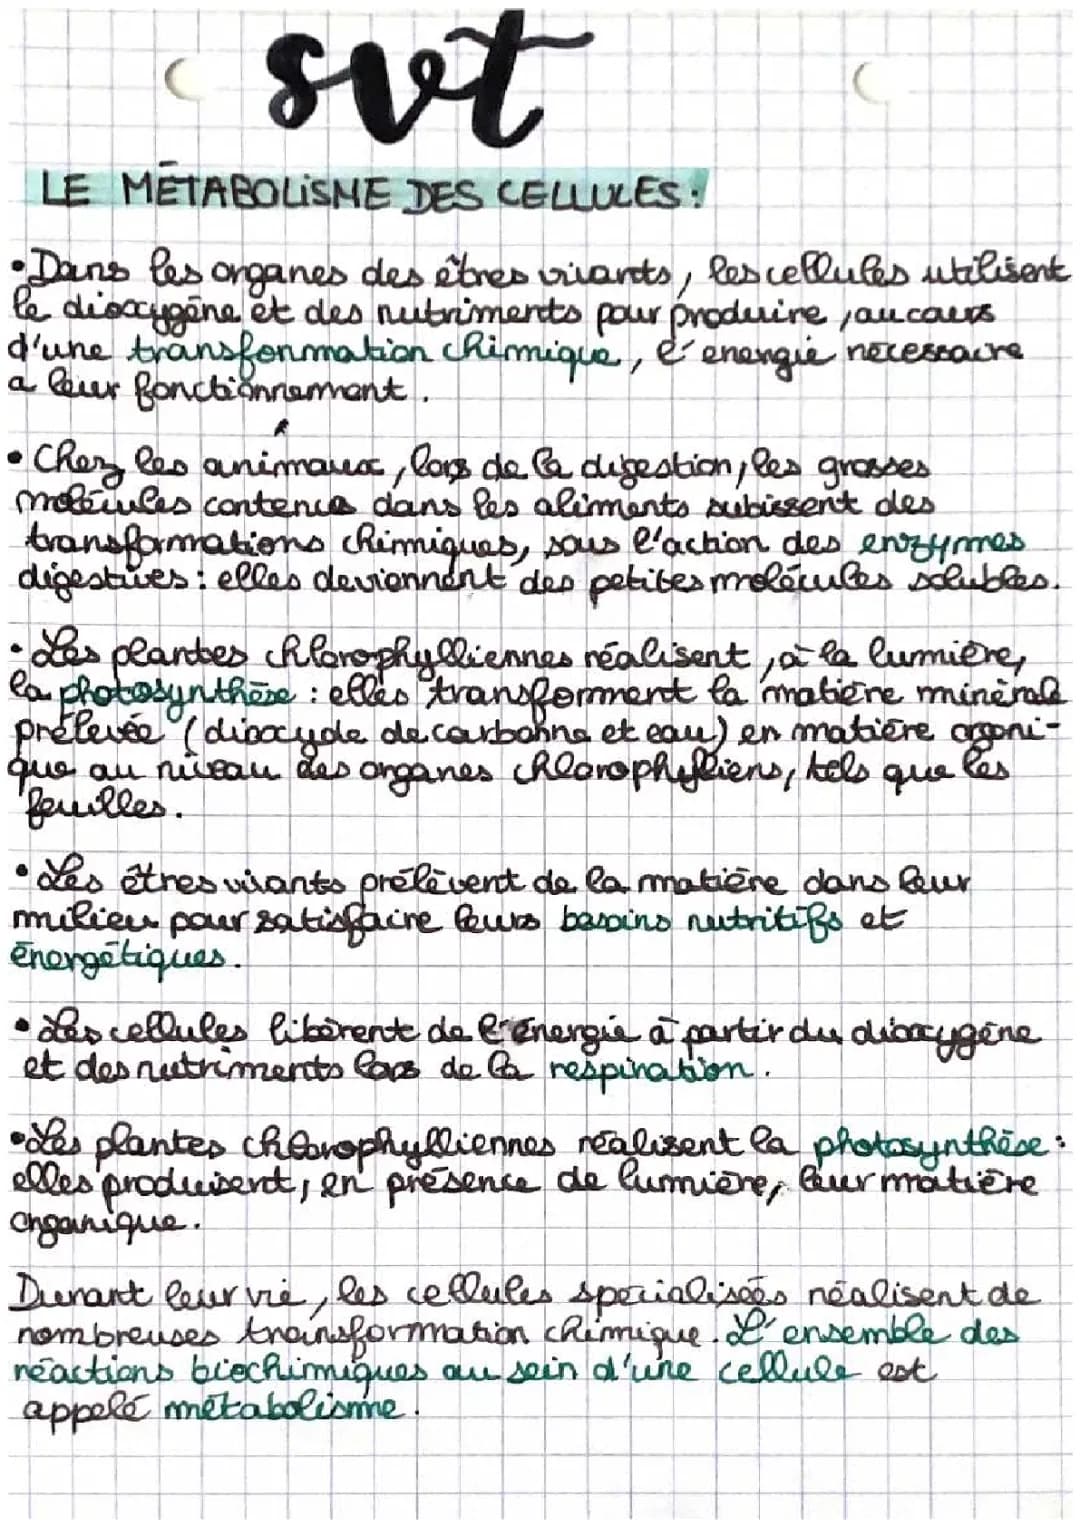 svt
LE MÉTABOLISME DES CELLULES :
•Dans les organes des êtres vivants, les cellules utilisent
le dioxygène et des nutriments pour produire, au cours
d'une transformation chimique, l'énergie nécessaire
a leur fonctionnement.
•Chez les animaux, lors de la digestion, les grosses
molécules contenus dans les aliments subissent des
transformations chimiques, sous l'action des enzymes
digestives : elles deviennent des petites molécules solubles.
•Les plantes chlorophylliennes réalisent, à la lumière,
la photosynthèse : elles transforment la matière minérale
prélevée (dioxyde de carbonne et eau) en matière organi-
que au niveau des organes chlorophylliens, tels que les
feuilles.
•Les êtres vivants prélèvent de la matière dans leur
milieu pour satisfaire leurs besoins nutritifs et
énergétiques.
•Les cellules libèrent de l'énergie à partir du dioxygène
et des nutriments lors de la respiration.
•Les plantes chlorophylliennes réalisent la photosynthèse :
elles produisent, en présence de lumière, leur matière
organique.
Durant leur vie, les cellules spécialisées réalisent de
nombreuses transformation chimique. L'ensemble des
réactions biochimiques au sein d'une cellule est
appelé métabolisme.